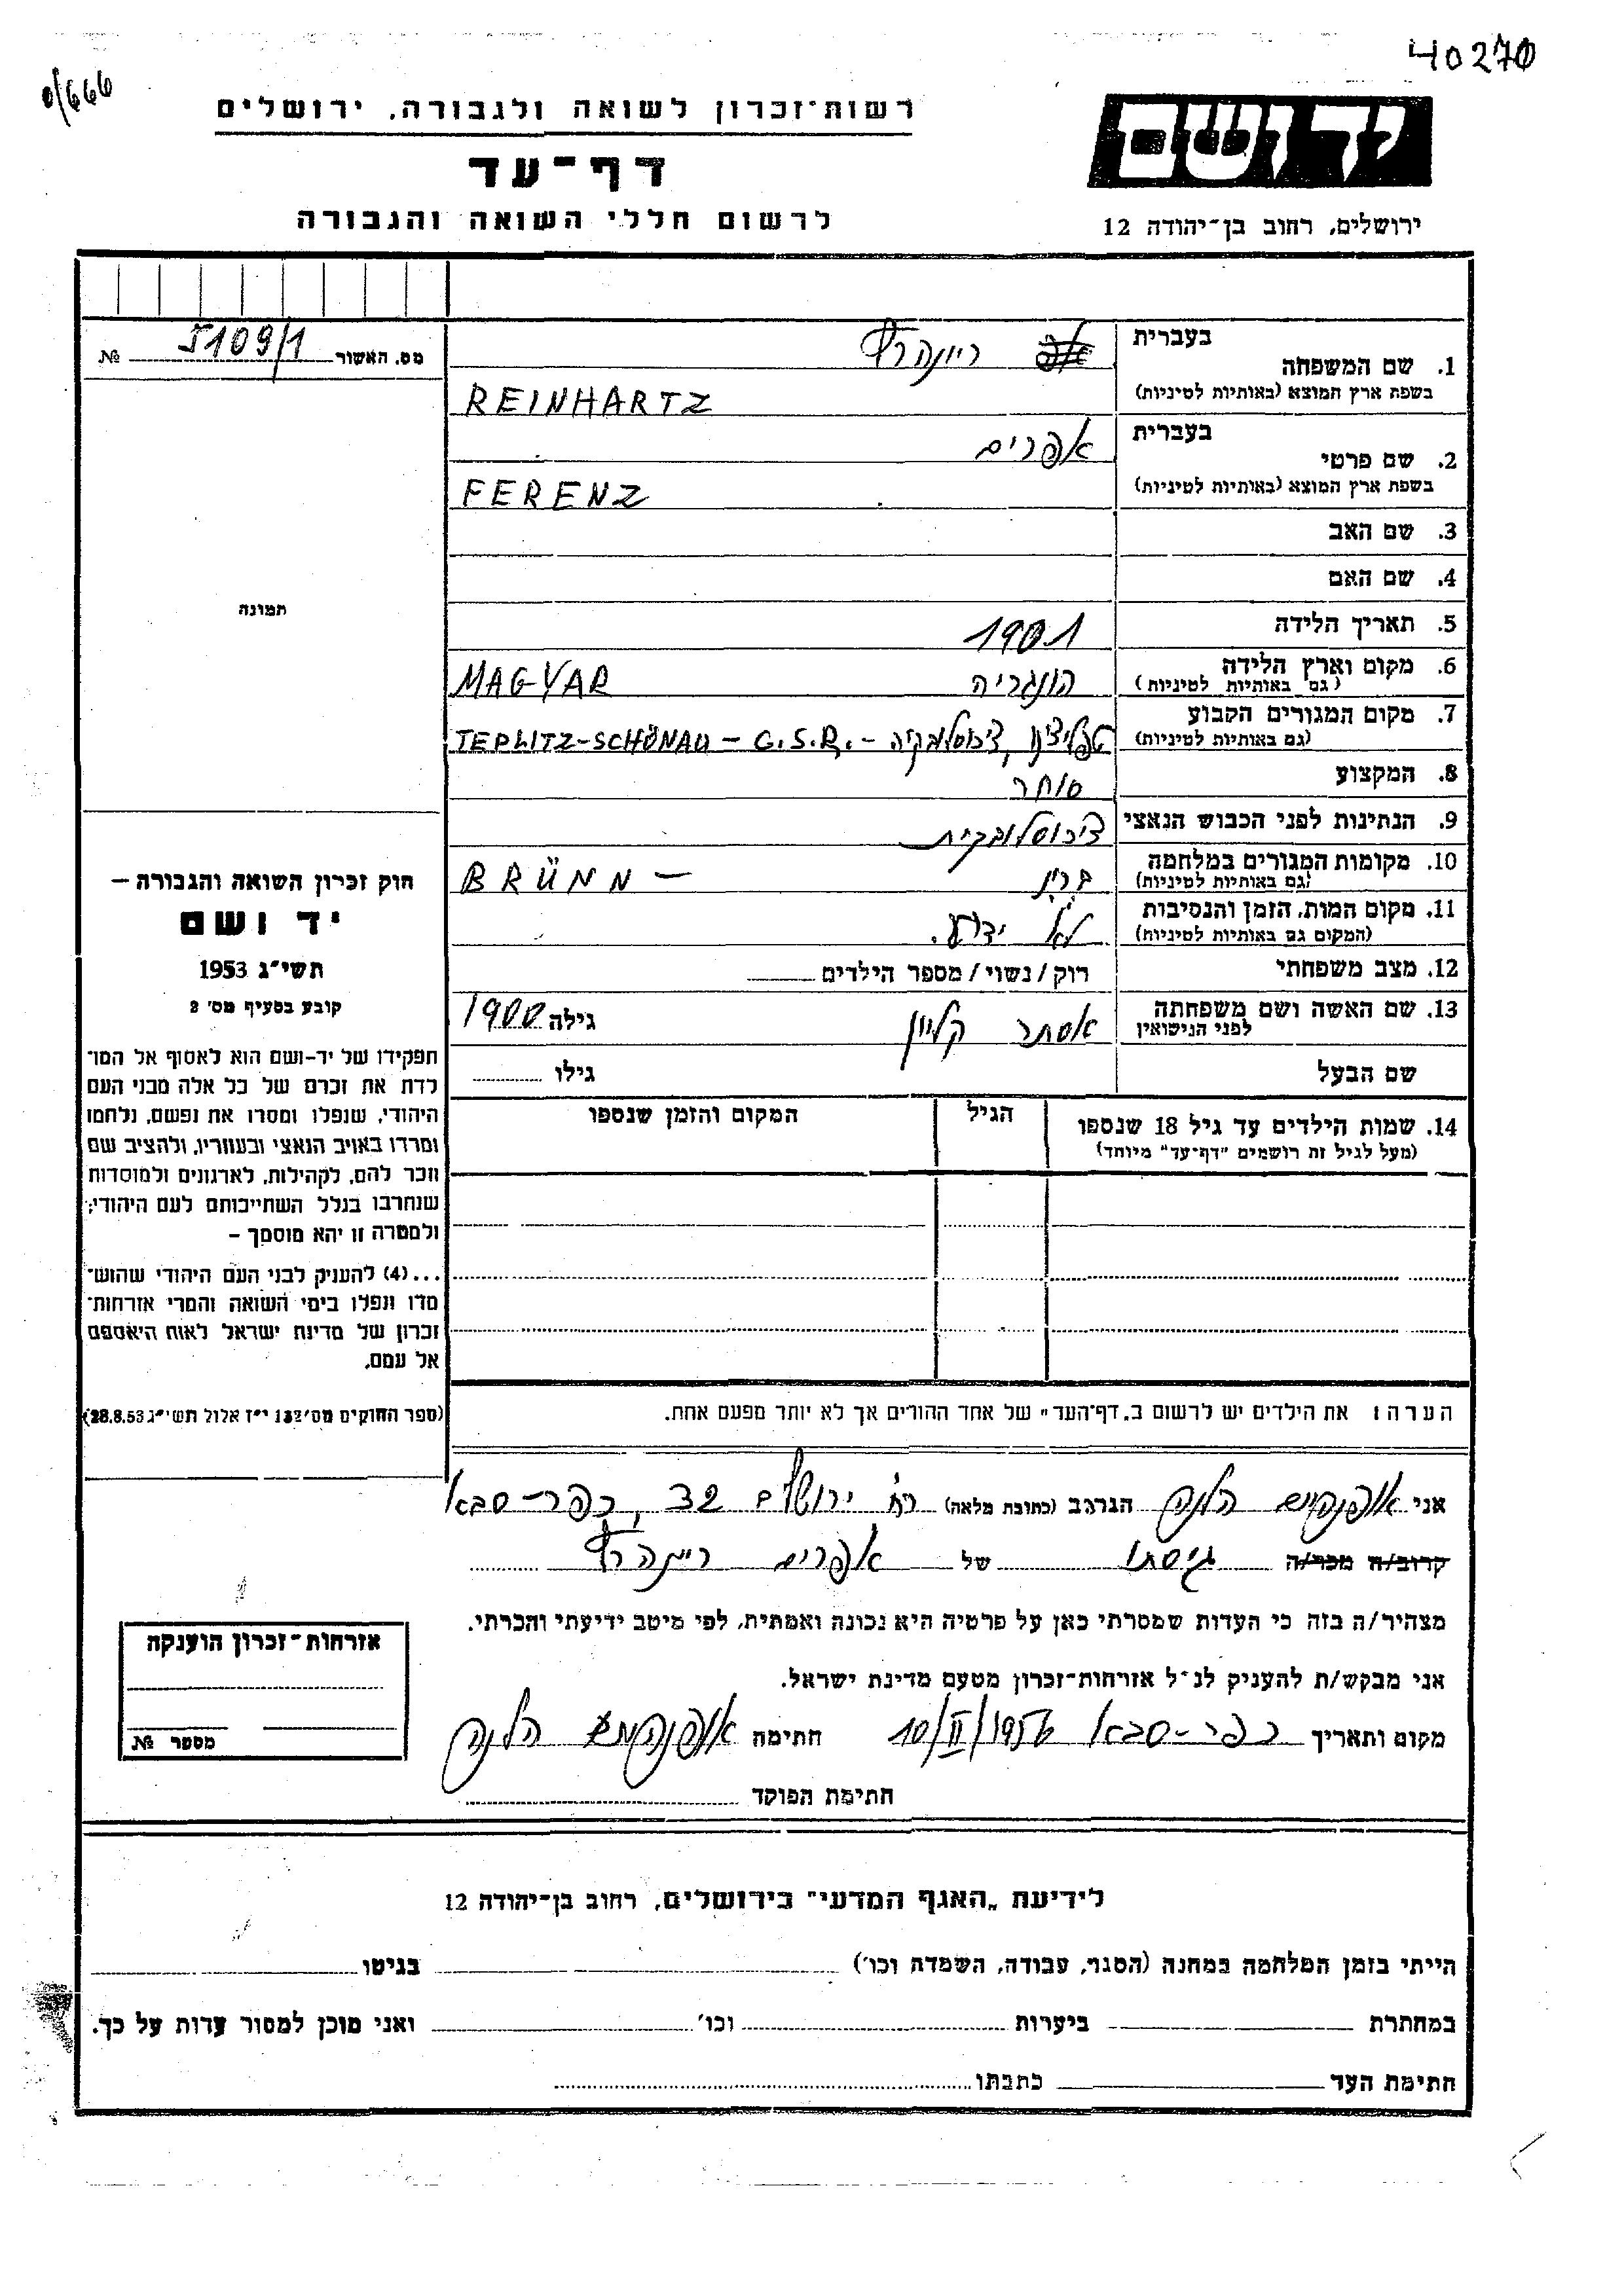 40270
0/666
רשות־זכרון לשואה ולגבורה, ירושלים
דף־עד
לרשום חללי השואה והגבורה
יד ושם
ירושלים, רחוב בן־יהודה 12
מס. האשור 5109/1 №
בעברית
1. שם המשפחה ריינהרץ
בשפת ארץ המוצא (באותיות לטיניות) REINHARTZ
בעברית
2. שם פרטי אפרים
בשפת ארץ המוצא (באותיות לטיניות) FERENZ
3. שם האב
4. שם האם
תמונה
5. תאריך הלידה 1901
6. מקום וארץ הלידה הונגריה MAGYAR
(גם באותיות לטיניות)
7. מקום המגורים הקבוע טפליצץ, ציכוסלובקיה - TEPLITZ-SCHÖNAU - C.S.R.
(גם באותיות לטיניות)
8. המקצוע סוחר
9. הנתינות לפני הכבוש הנאצי ציכוסלובקית
10. מקומות המגורים במלחמה ברין BRÜNN -
(גם באותיות לטיניות)
11. מקום המות, הזמן והנסיבות לא ידוע.
(המקום גם באותיות לטיניות)
12. מצב משפחתי רוק/נשוי/מספר הילדים
13. שם האשה ושם משפחתה אסתר קליין גילה 1900
לפני הנישואין
שם הבעל גילו
14. שמות הילדים עד גיל 18 שנספו הגיל המקום והזמן שנספו
(מעל לגיל זה רושמים "דף־עד" מיוחד)
חוק זכרון השואה והגבורה –
יד ושם
תשי״ג 1953
קובע בסעיף מס׳ 2
תפקידו של יד-ושם הוא לאסוף אל המו־
לדת את זכרם של כל אלה מבני העם
היהודי, שנפלו ומסרו את נפשם, נלחמו
ומרדו באויב הנאצי ובעוזריו, ולהציב שם
וזכר להם, לקהילות, לארגונים ולמוסדות
שנחרבו בגלל השתייכותם לעם היהודי;
ולמטרה זו יהא מוסמך –
...(4) להעניק לבני העם היהודי שהוש־
מדו ונפלו בימי השואה והמרי אזרחות־
זכרון של מדינת ישראל לאות היאספם
אל עמם.
(ספר החוקים מס׳ 132 י״ז אלול תשי״ג 28.8.53)
הערה: את הילדים יש לרשום ב„דף־העד" של אחד ההורים אך לא יותר מפעם אחת.
אני הלנה הגר/ה ב (כתובת מלאה) רח׳ ירושלים 32, כפר-סבא
קרוב/ה מכר/ה גיסתו של אפרים ריינהרץ
מצהיר/ה בזה כי העדות שמסרתי כאן על פרטיה היא נכונה ואמתית, לפי מיטב ידיעתי והכרתי.
אני מבקש/ת להעניק לנ״ל אזרחות־זכרון מטעם מדינת ישראל.
מקום ותאריך כפר-סבא 10/II/1956 חתימה הלנה
חתימת הפוקד
אזרחות־זכרון הוענקה
מספר №
לידיעת „האגף המדעי" בירושלים, רחוב בן־יהודה 12
הייתי בזמן המלחמה במחנה (הסגר, עבודה, השמדה וכו׳) בגיטו
במחתרת ביערות וכו׳ ואני מוכן למסור עדות על כך.
חתימת העד כתבתו